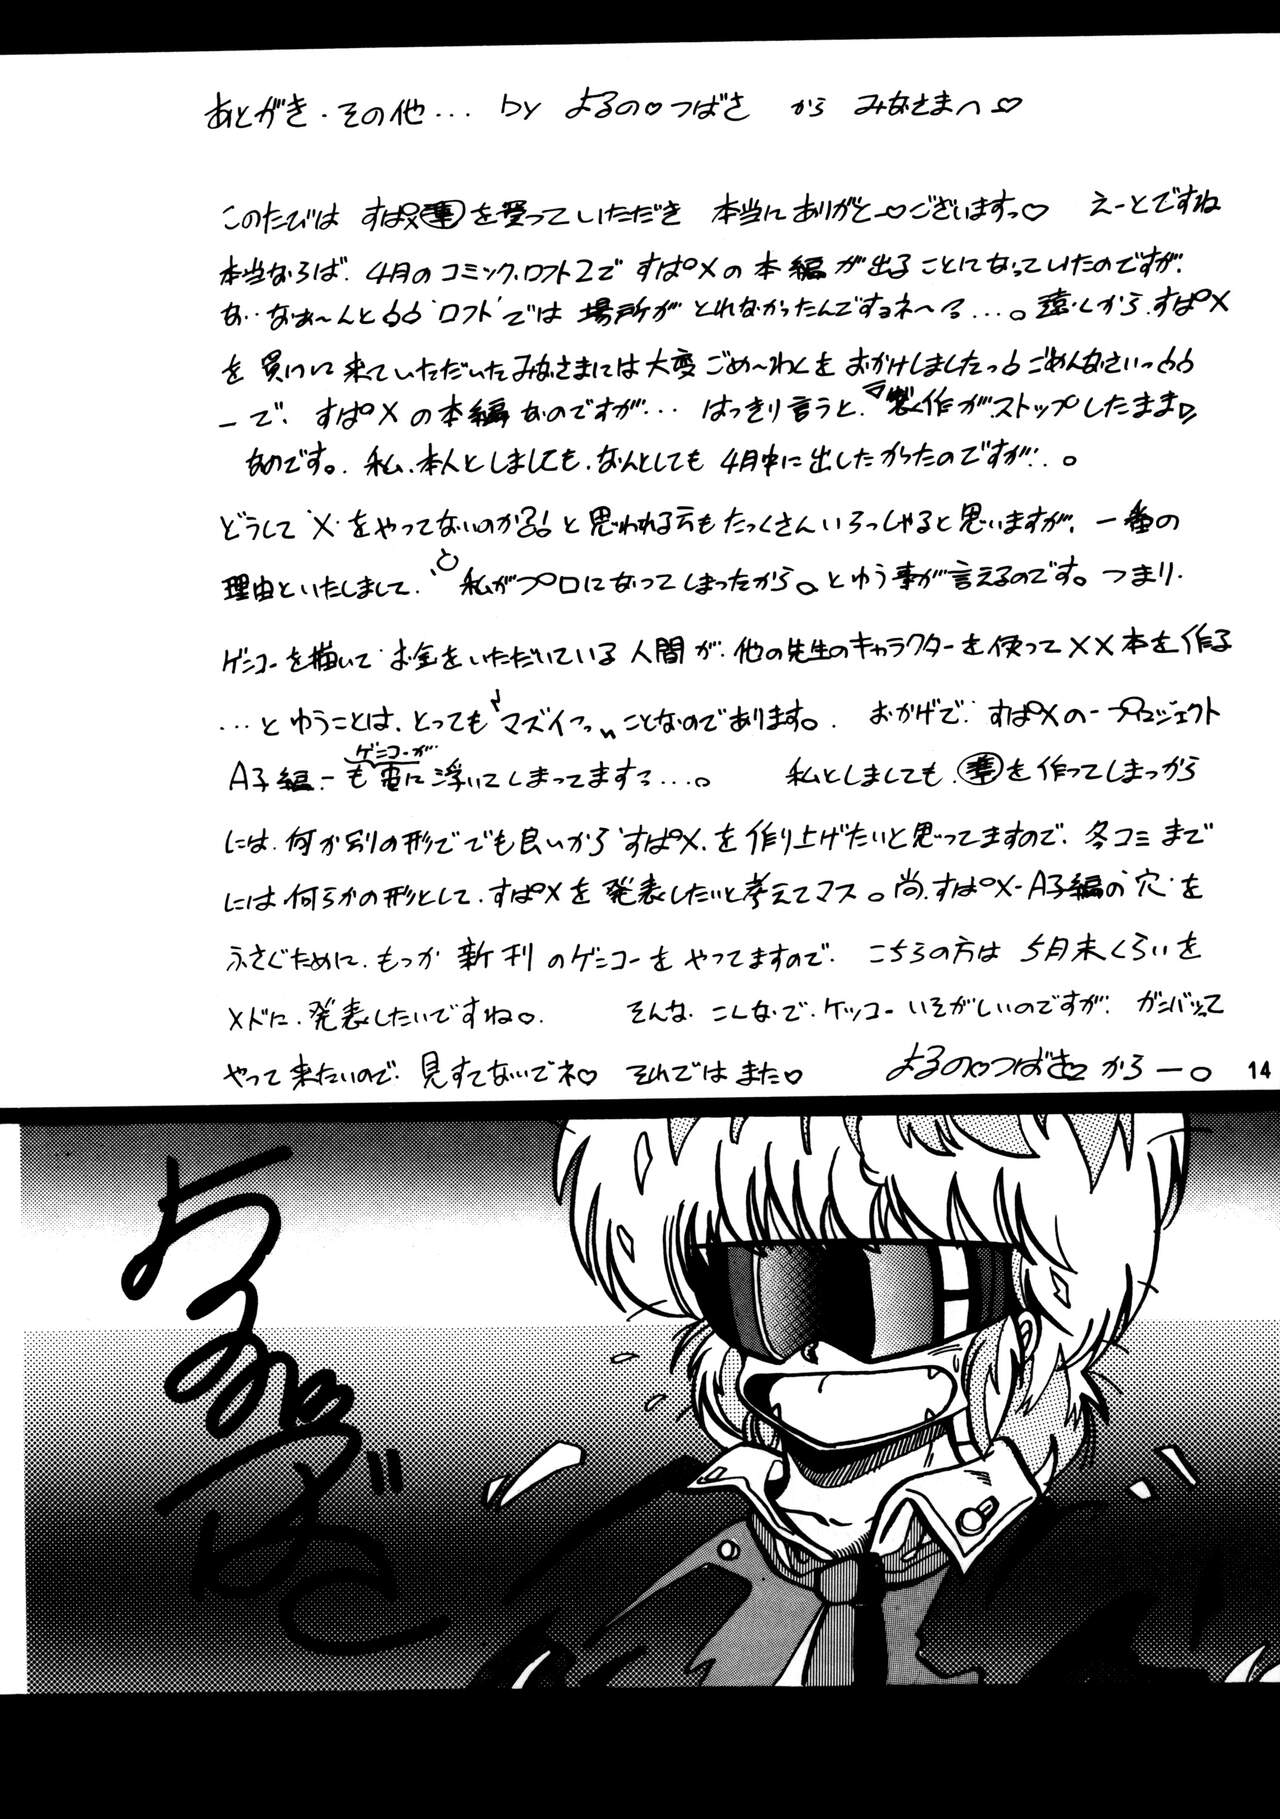 あとがき・その他... by よるの♡つばさ から みなさまへ♡
このたびは すぱ✕準を買っていただき 本当にありがとー♡ございますっ♡ えーとですね
本当ならば、4月のコミック・ロフト2で すぱ°✕の本編が出ることになっていたのですが、
な..なぁ〜んと 'ロフト'では 場所が とれなかったんですョネ〜る....。遠くから、すぱ°✕
を買いに来ていただいたみなさまには大変ごめ〜わくを おかけしましたっ ごめんなさいっ
ーで、すぱ°✕の本編なのですが... はっきり言うと、"製作がストップしたまま"
なのです。私、本人としましても、なんとしても 4月中に出したかったのですが..。
どうして'✕'をやってないのか?! と思われる方もたっくさんいらっしゃると思いますが、一番の
理由といたしまして、と 私がプロになってしまったから。とゆう事が言えるのです。つまり、
ゲンコーを描いて お金をいただいている人間が、他の先生のキャラクターを使って✕✕本を作る
...とゆうことは、とっても"マズイっ"ことなのであります。 おかげで、すぱ°✕のープロジェクト
A子編ーもゲンコーが宙に浮いてしまってますっ....。 私としましても、準を作ってしまっから
には、何か別の形ででも良いから'すぱ°✕'を作り上げたいと思ってますので、冬コミまで
には何らかの形として、すぱ°✕を発表したいと考えてマス。尚、すぱ°✕-A子編の'穴'を
ふさぐために、もっか 新刊のゲンコーをやってますので、 こちらの方は 5月末くらいを
メドに、発表したいですね。 そんな こんなで、ケッコー いそがしいのですが、ガンバって
やって来たいので、見すてないでネ♡ それでは また♡ よるの♡つばさ♡ からー。
14
よるのつばさ